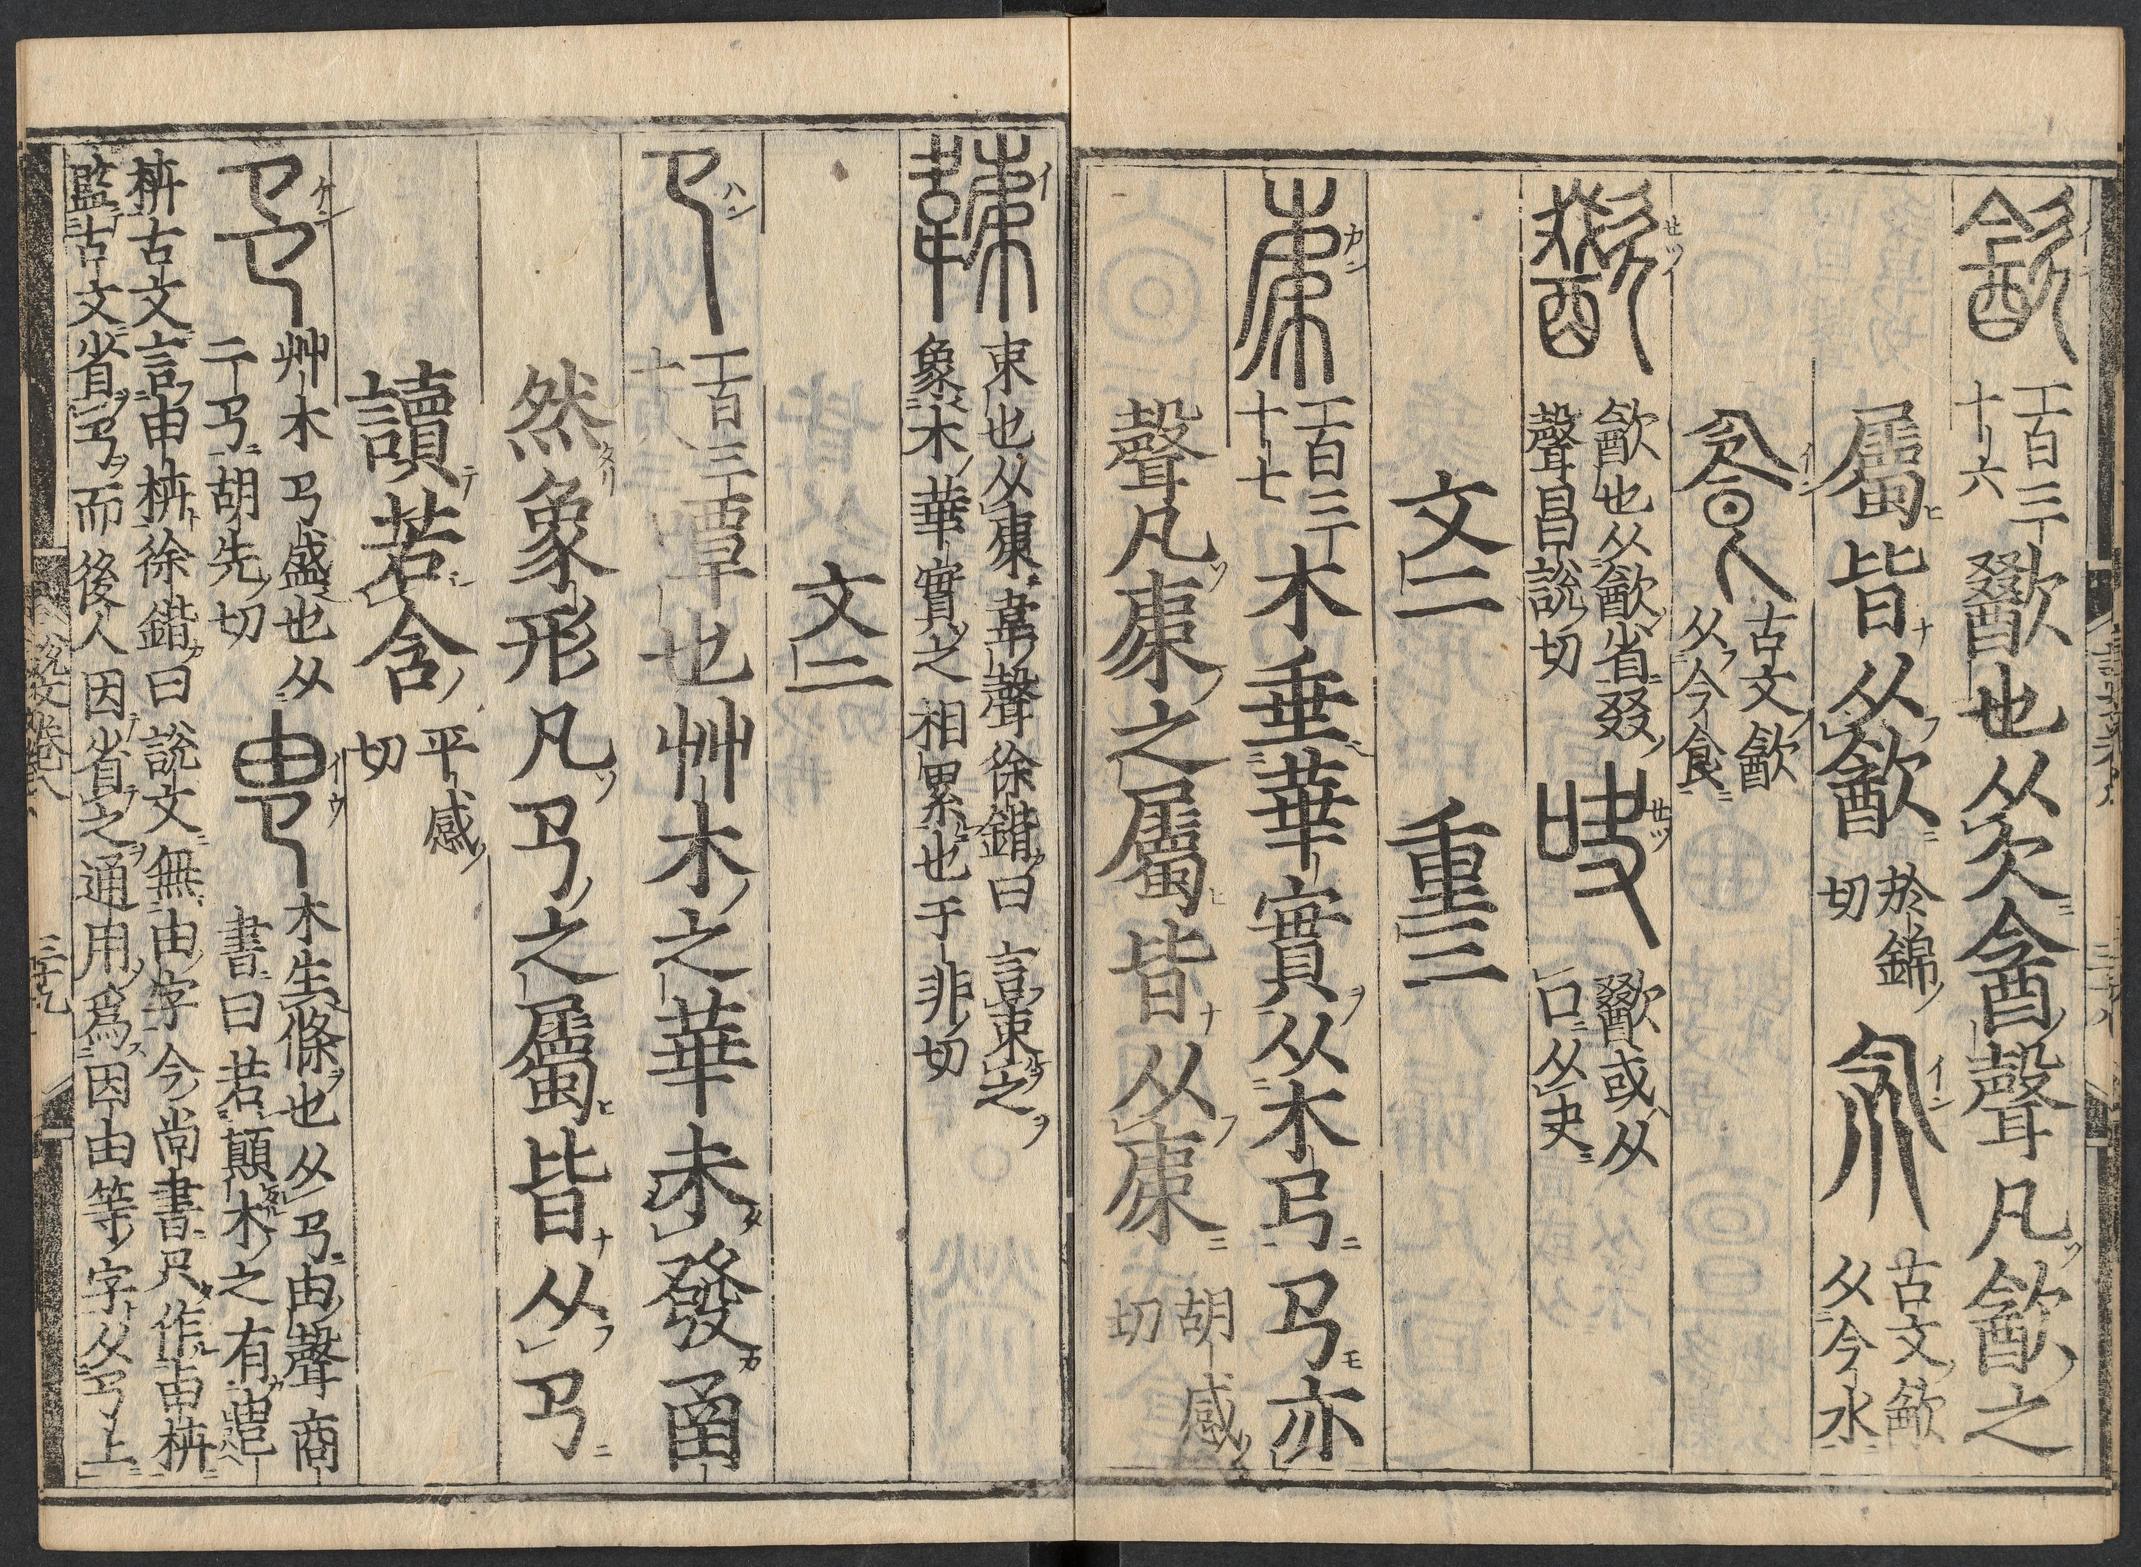 二百三
十六
歠也从欠酓聲凡㱃之
屬皆从㱃
於錦
切
古文㱃
从今水
古文㱃
从今食
㱃也从㱃省叕
聲昌說切
歠或从
口从夬
文二 重三
二百三
十七
木垂華實从木㢧㢧亦
聲凡𣐺之屬皆从𣐺
胡感
切
束也从𣐺韋聲徐鍇曰言束之
象木華實之相累也于非切
文二
二百三
十
嘾也艸木之華未發圅
然象形凡㢧之屬皆从㢧
讀若含
平感
切
艸木㢧盛也从
二㢧胡先切
木生條也从㢧由聲商
書曰若顛木之有㽕
枿古文言由枿徐鍇曰說文無由字今尚書只作由枿
葢古文省㢧而後人因省之通用爲因由等字从㢧上
說文卷八
三十九